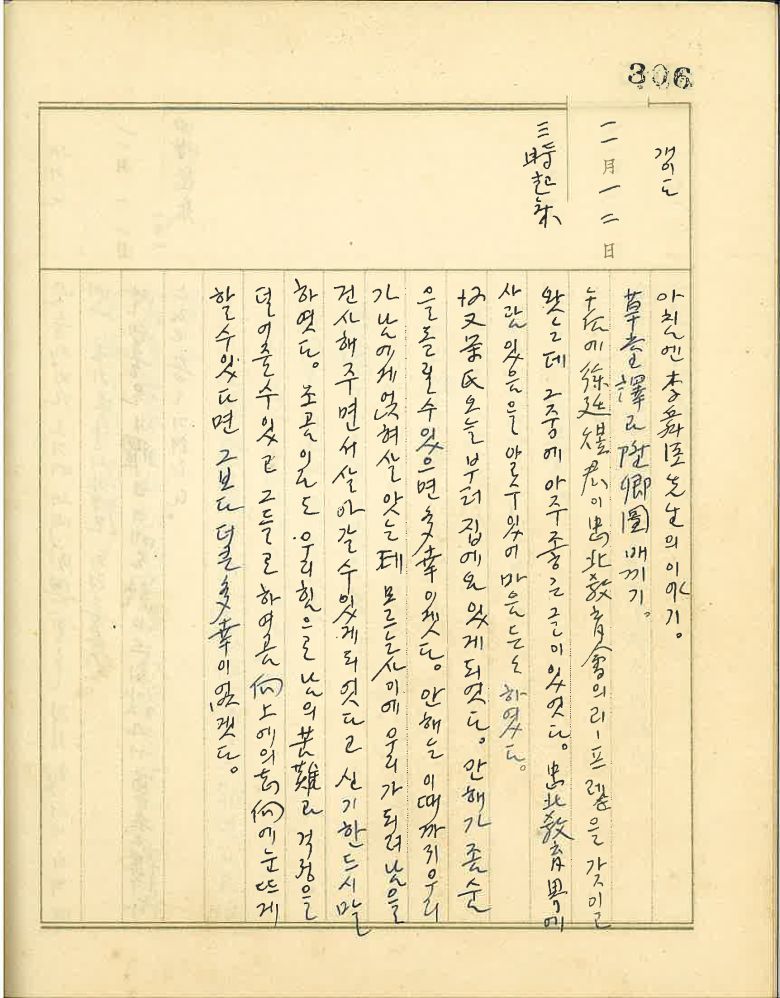 306
갬. 도
一一月一二日
三時起床
아침엔 李舜臣先生의 이야기.
草堂譯과 陞卿圖 베끼기.
午后에 徐廷煜君이 忠北敎育會의 리ー프렡을 갖이고
왔는데 그중에 아주 좋은 글이 있엇다. 忠北敎育界에
사람 있음을 알 수 있어 마음 든든하였다.
又榮氏 오늘부터 집에 와 있게 되엇다. 안해가 좀 순
을 돌릴 수 있으면 多幸이겟다. 안해는 이때까지 우리
가 남에게 얹혀 살앗는데 모르는 사이에 우리가 되려 남을
건사해 주면서 살아갈 수 있게 되엇다고 신기한 드시 말
하엿다. 조곰이라도 우리 힘으로 남의 苦難과 걱정을
덜어줄 수 있고 그들로 하여곰 向上에의 志向에 눈뜨게
할 수 있다면 그보다 더 큰 多幸이 없겟다.